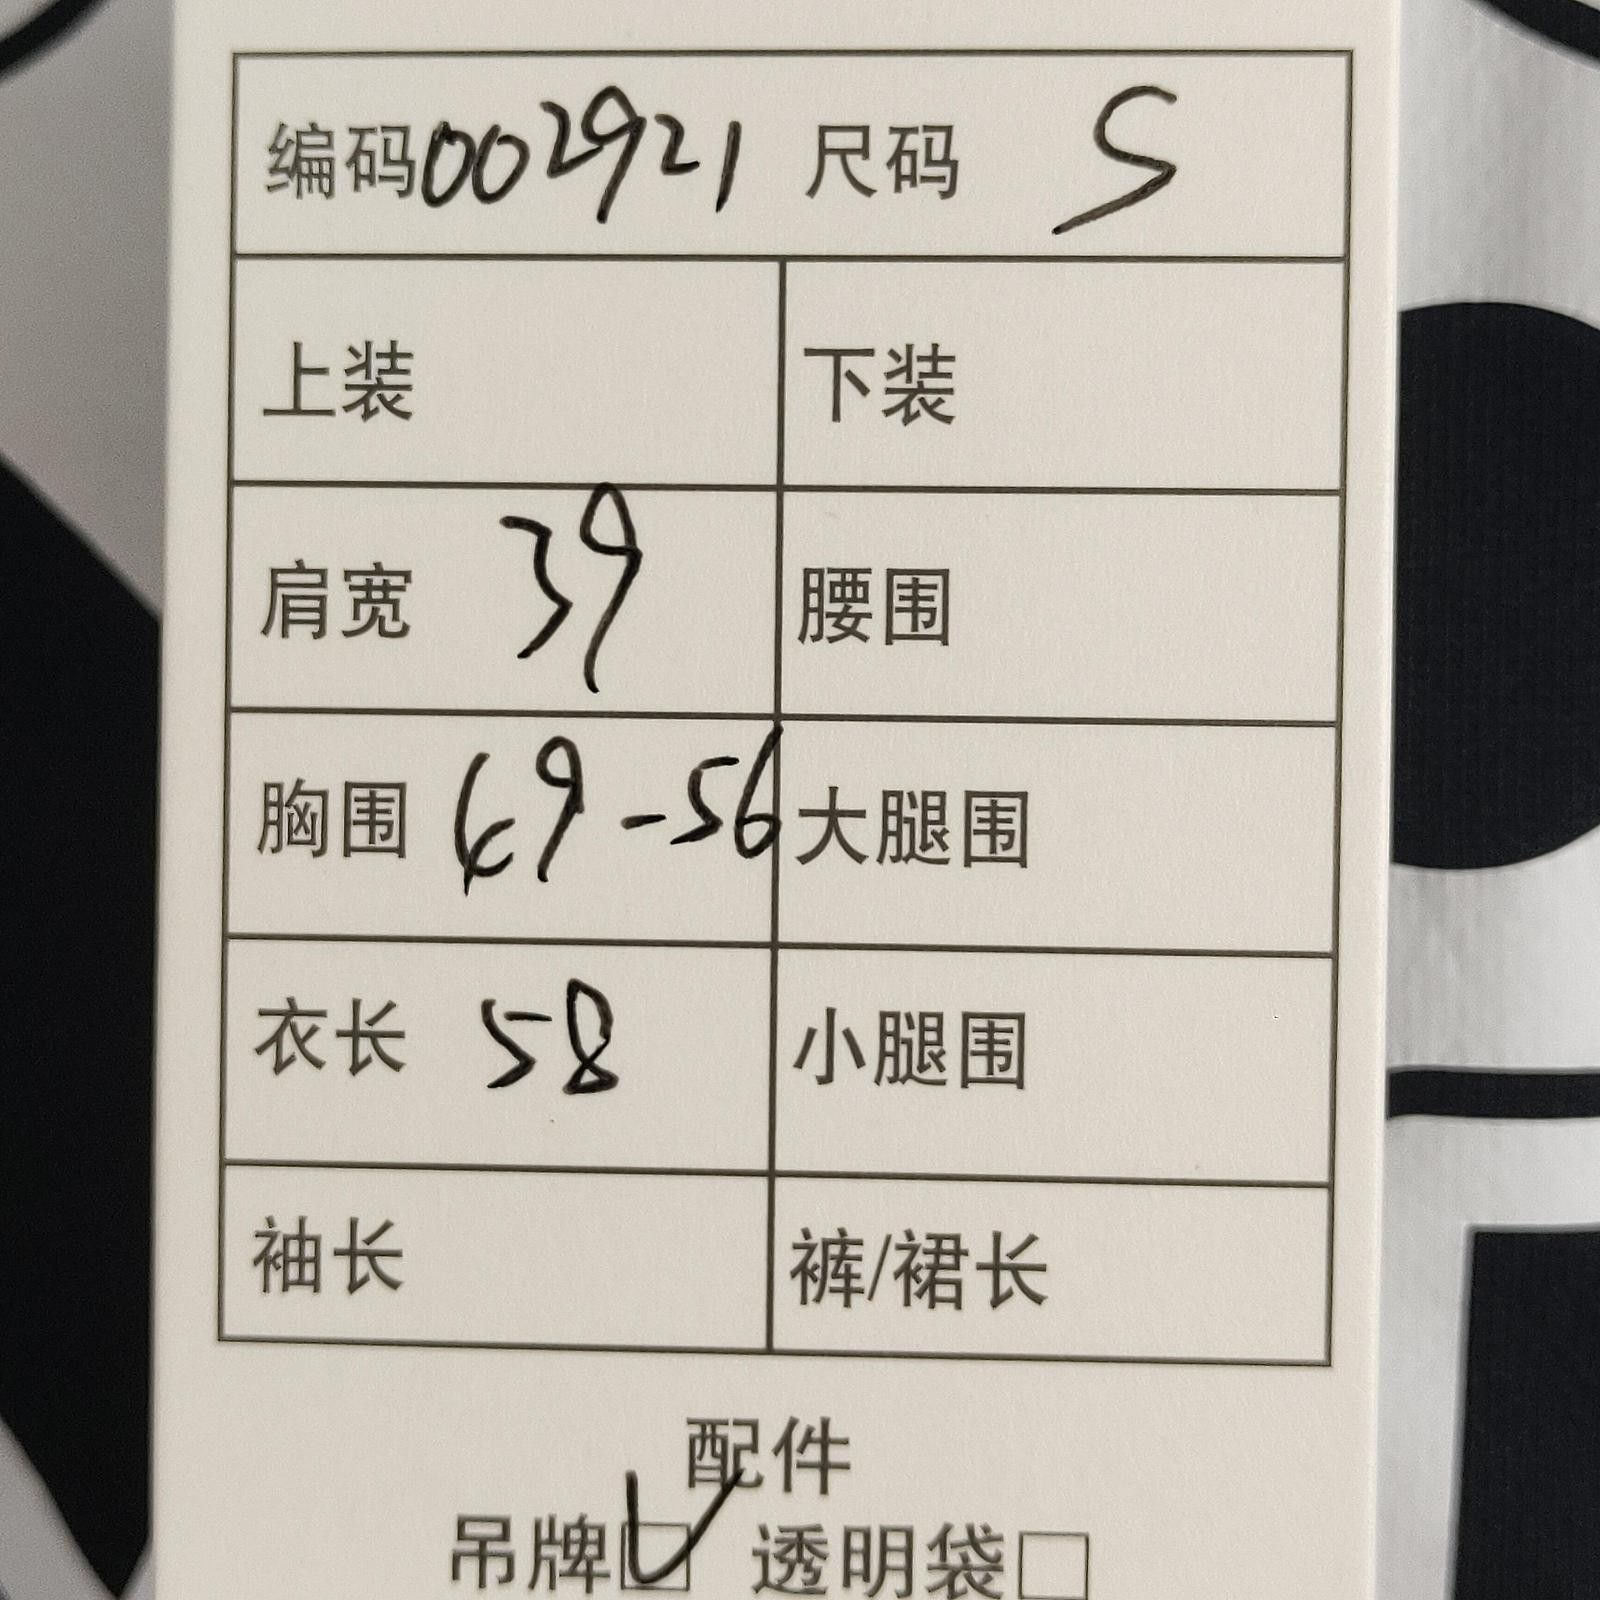 编码002921 尺码 S
上装 下装
肩宽 39 腰围
胸围 69-56 大腿围
衣长 58 小腿围
袖长 裤/裙长
配件
吊牌☑ 透明袋☐